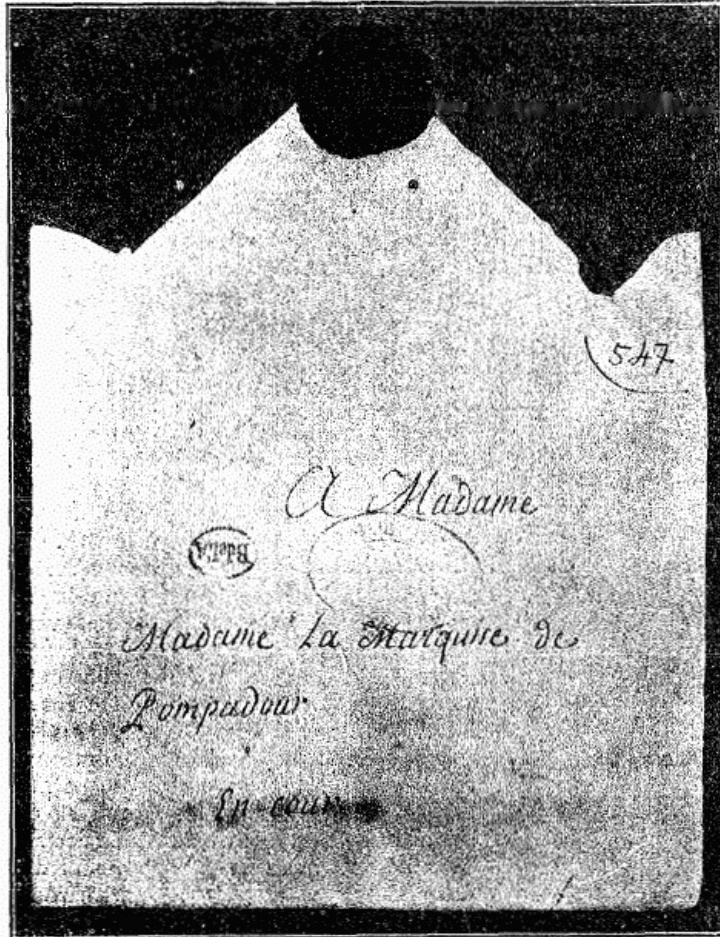 547
A Madame
BdelA
Madame La Marquise de
Pompadour
En cour